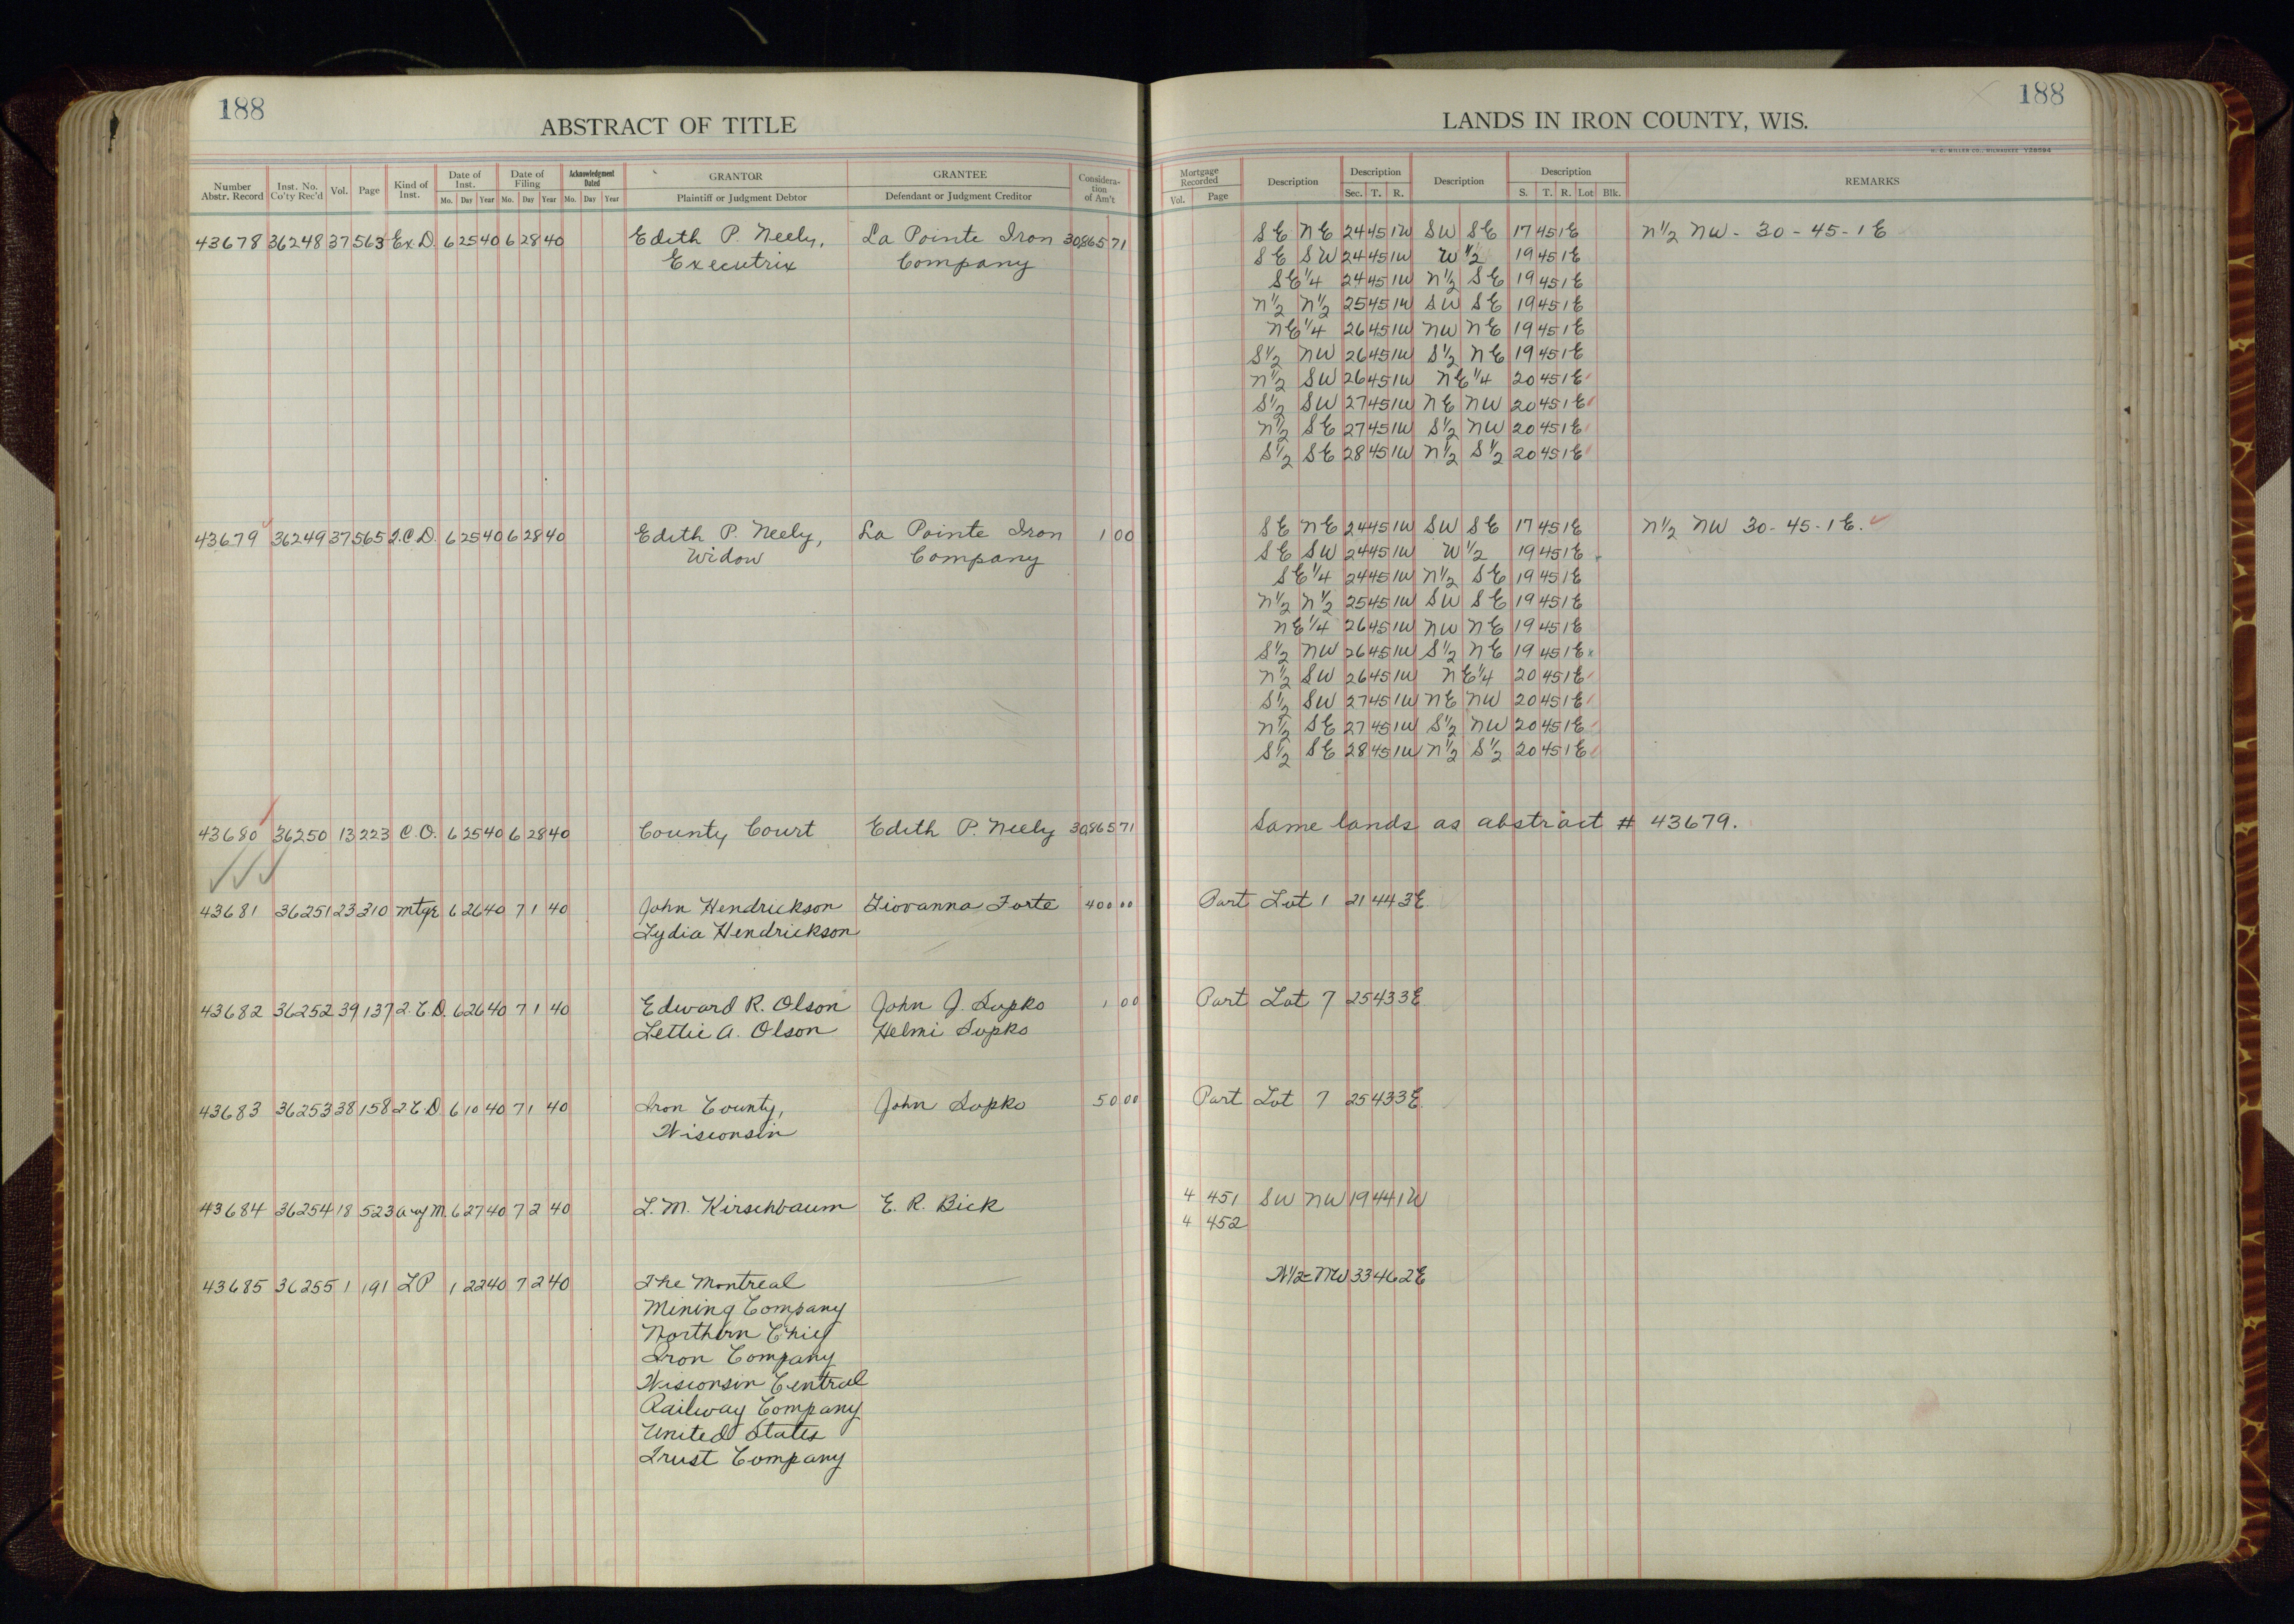 188
ABSTRACT OF TITLE
Number Abstr. Record Inst. No. Co'ty Rec'd Vol. Page Kind of Inst. Date of Inst. Mo. Day Year Date of Filing Mo. Day Year Acknowledgment Dated Mo. Day Year GRANTOR Plaintiff or Judgment Debtor GRANTEE Defendant or Judgment Creditor Consideration of Am't
43678 36248 37 563 Ex. D. 6 25 40 6 28 40 Edith P. Neely, La Pointe Iron 30,865 71
Executrix Company
43679 36249 37 565 Q.C.D. 6 25 40 6 28 40 Edith P. Neely, La Pointe Iron 1 00
Widow Company
43680 36250 13 223 C.O. 6 25 40 6 28 40 County Court Edith P. Neely 30,865 71
43681 36251 23 310 Mtge 6 26 40 7 1 40 John Hendrickson Giovanna Forte 400 00
Lydia Hendrickson
43682 36252 39 137 Q.C.D. 6 26 40 7 1 40 Edward R. Olson John J. Supko 1 00
Lettie A. Olson Helmi Supko
43683 36253 38 158 Q.C.D. 6 10 40 7 1 40 Iron County, John Supko 50 00
Wisconsin
43684 36254 18 523 A of M. 6 27 40 7 2 40 L. M. Kirschbaum E. R. Bick
43685 36255 1 191 LP 1 22 40 7 2 40 The Montreal
Mining Company
Northern Chief
Iron Company
Wisconsin Central
Railway Company
United States
Trust Company
188
LANDS IN IRON COUNTY, WIS.
H. C. MILLER CO., MILWAUKEE
Mortgage Recorded Vol. Page Description Description Sec. T. R. Description Description S. T. R. Lot Blk. REMARKS
SE NE 24 45 1W SW SE 17 45 1E N½ NW - 30 - 45 - 1E
SE SW 24 45 1W W½ 19 45 1E
SE¼ 24 45 1W N½ SE 19 45 1E
N½ N½ 25 45 1W SW SE 19 45 1E
NE¼ 26 45 1W NW NE 19 45 1E
S½ NW 26 45 1W S½ NE 19 45 1E
N½ SW 26 45 1W NE¼ 20 45 1E
S½ SW 27 45 1W NE NW 20 45 1E
N½ SE 27 45 1W S½ NW 20 45 1E
S½ SE 28 45 1W N½ S½ 20 45 1E
SE NE 24 45 1W SW SE 17 45 1E N½ NW 30 - 45 - 1E.
SE SW 24 45 1W W½ 19 45 1E
SE¼ 24 45 1W N½ SE 19 45 1E
N½ N½ 25 45 1W SW SE 19 45 1E
NE¼ 26 45 1W NW NE 19 45 1E
S½ NW 26 45 1W S½ NE 19 45 1E
N½ SW 26 45 1W NE¼ 20 45 1E
S½ SW 27 45 1W NE NW 20 45 1E
N½ SE 27 45 1W S½ NW 20 45 1E
S½ SE 28 45 1W N½ S½ 20 45 1E
Same lands as abstract # 43679.
Part Lot 1 21 44 3E
Part Lot 7 25 43 3E
Part Lot 7 25 43 3E
4 451 SW NW 19 44 1W
4 452
N½ NW 33 46 2E